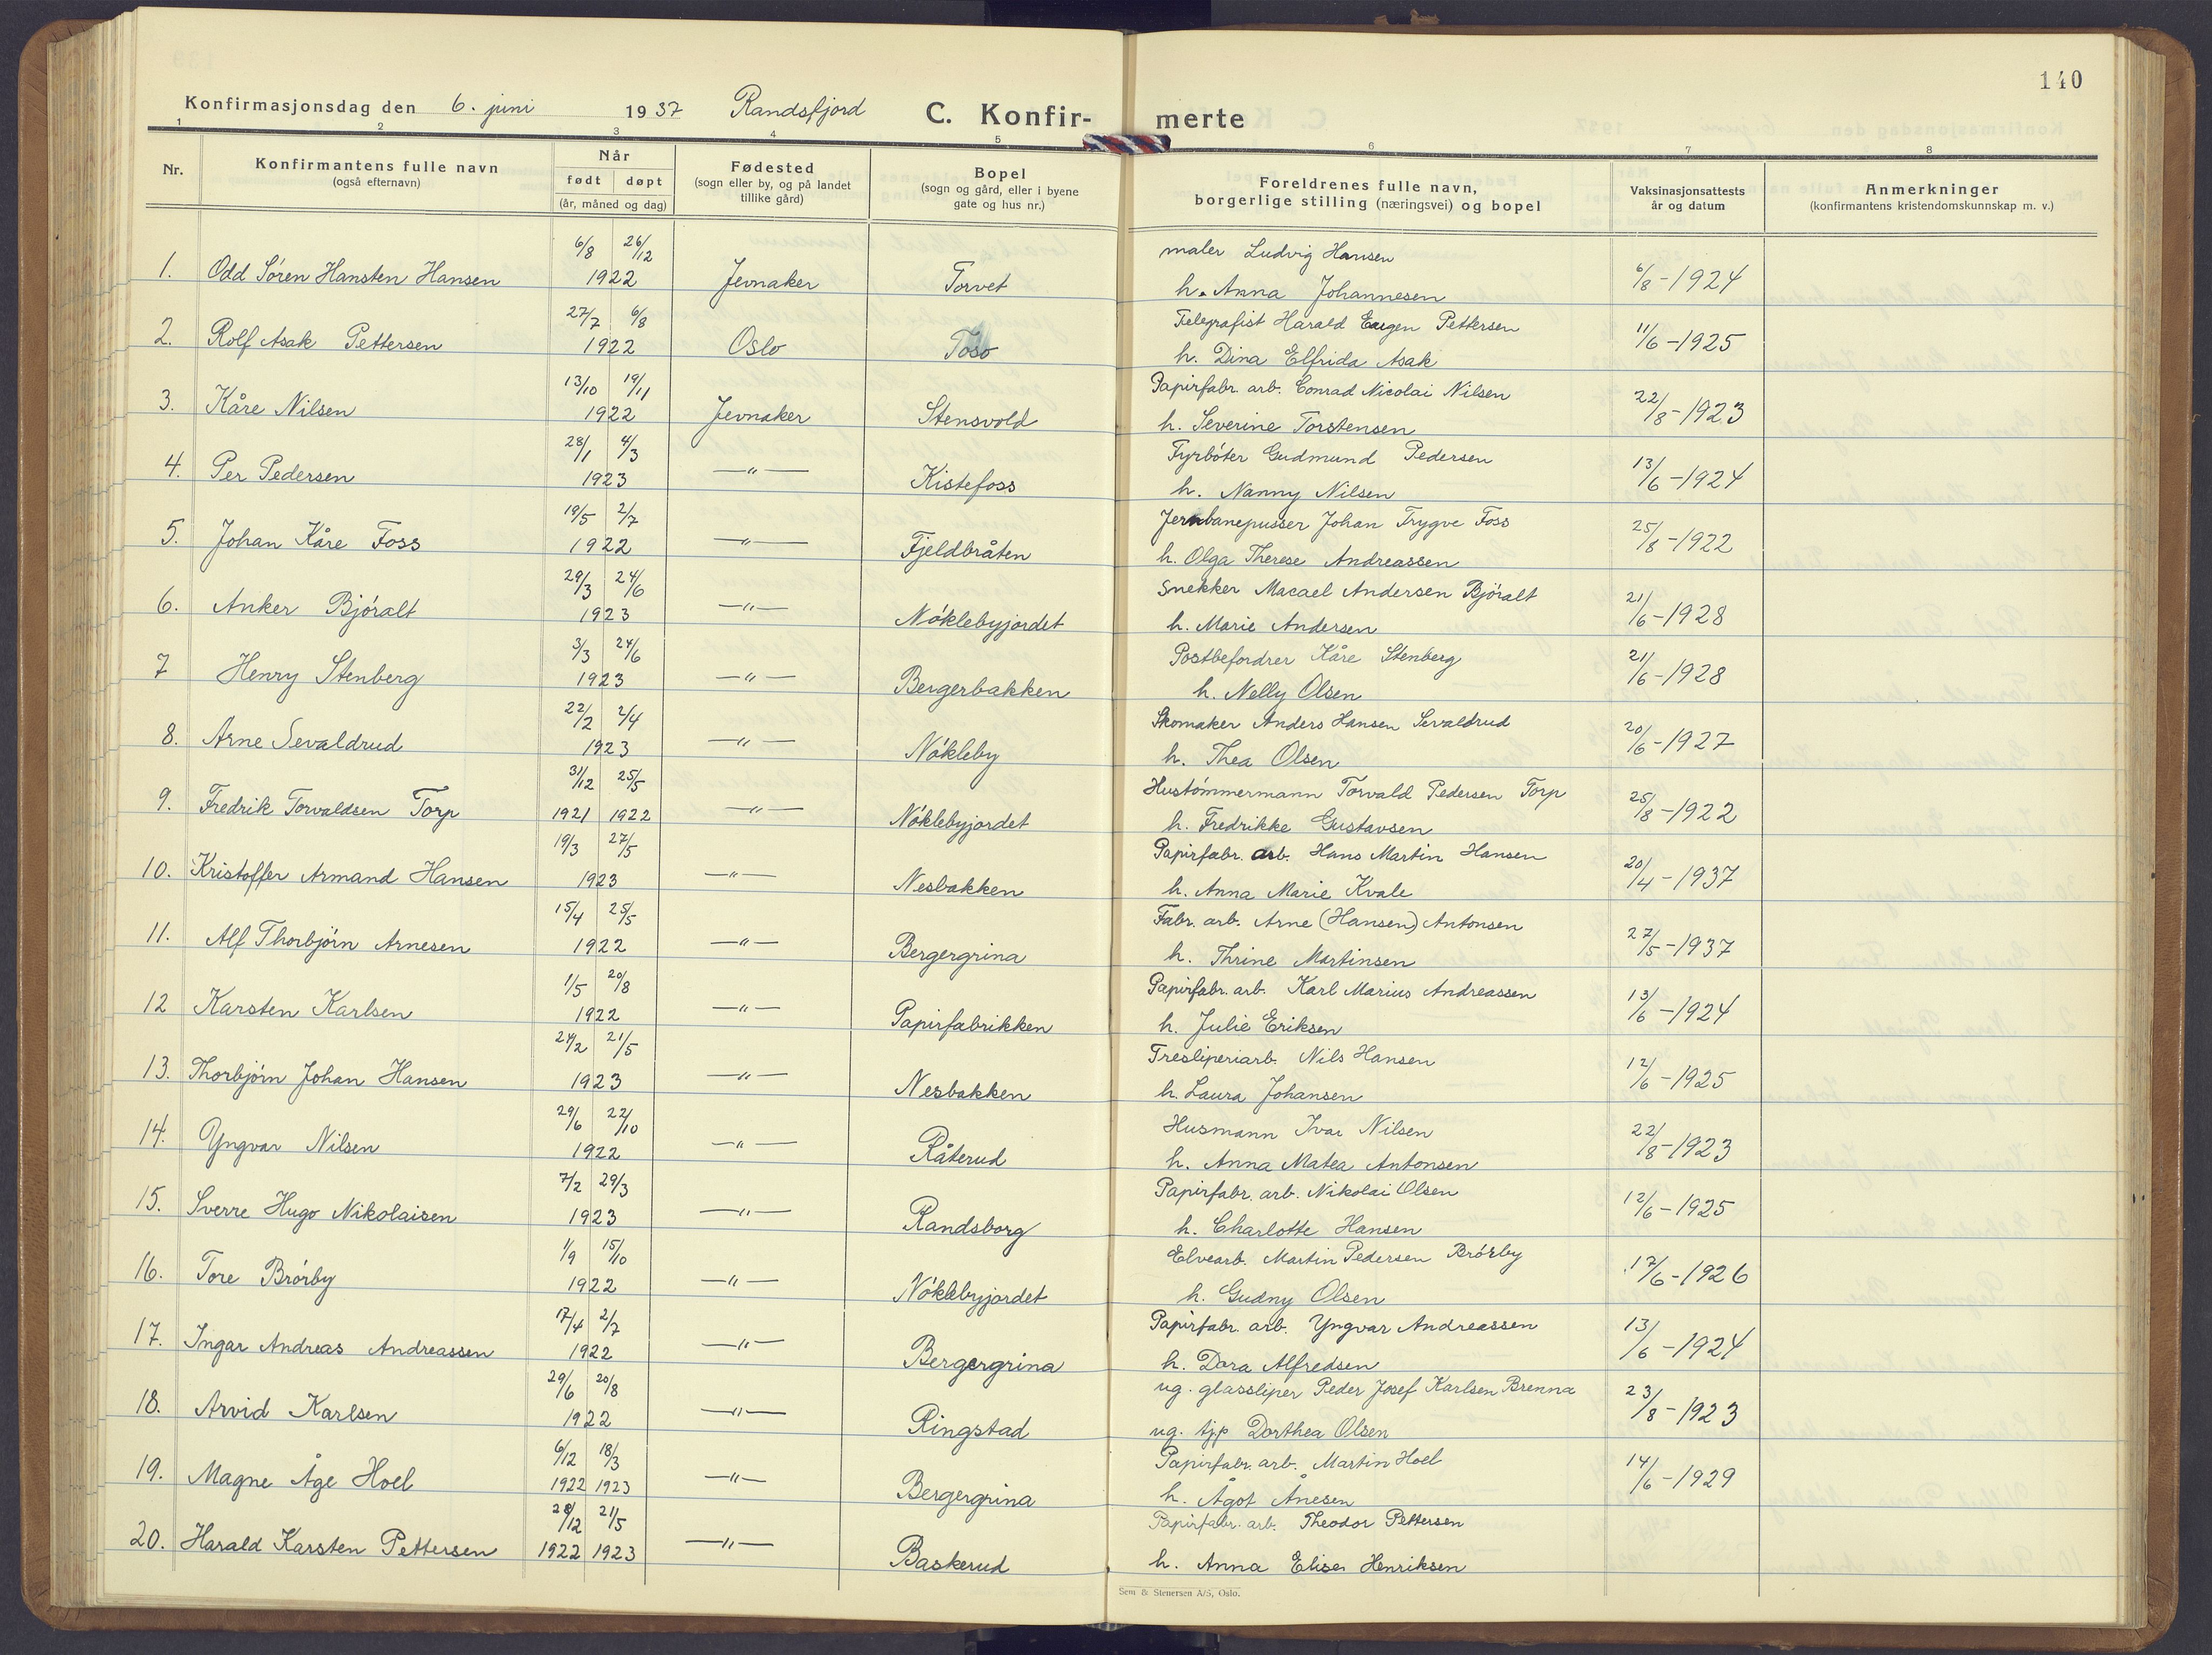 140
Konfirmasjonsdag den 6. juni 1937 Randsfjord C. Konfir- merte
1 2 3 4 5 6 7 8
Nr. Konfirmantens fulle navn (også efternavn) Når født døpt (år, måned og dag) Fødested (sogn eller by, og på landet tillike gård) Bopel (sogn og gård, eller i byene gate og hus nr.) Foreldrenes fulle navn, borgerlige stilling (næringsvei) og bopel Vaksinasjonsattests år og datum Anmerkninger (konfirmantens kristendomskunnskap m. v.)
1. Odd Sören Hansten Hansen 6/8 26/12 1922 Jevnaker Torvet maler Ludvig Hansen
h. Anna Johannesen 6/8-1924
2. Rolf Asak Pettersen 27/7 6/8 1922 Oslo Toso Telegrafist Harald Eugen Pettersen
h. Dina Elfrida Asak 11/6-1925
3. Kåre Nilsen 13/10 19/11 1922 Jevnaker Stensvold Papirfabr. arb. Conrad Nicolai Nilsen
h. Severine Torstensen 22/8-1923
4. Per Pedersen 28/1 4/3 1923 —"— Kistefoss Fyrböter Gudmund Pedersen
h. Nanny Nilsen 13/6-1924
5. Johan Kåre Foss 19/5 2/7 1922 —"— Fjeldbråten Jernbanepusser Johan Trygve Foss
h. Olga Therese Andreassen 25/8-1922
6. Anker Björalt 29/3 24/6 1923 —"— Nöklebyjordet Snekker Macael Andersen Björalt
h. Marie Andersen 21/6-1928
7 Henry Stenberg 3/3 24/6 1923 —"— Bergerbakken Postbefordrer Kåre Stenberg
h. Nelly Olsen 21/6-1928
8. Arne Sevaldrud 22/2 2/4 1923 —"— Nökleby Skomaker Anders Hansen Sevaldrud
h. Thea Olsen 20/6-1927
9. Fredrik Torvaldsen Torp 31/12 25/5 1921 1922 —"— Nöklebyjordet Hustömmermann Torvald Pedersen Torp
h. Fredrikke Gustavsen 25/8-1922
10. Kristoffer Armand Hansen 19/3 27/5 1923 —"— Nesbakken Papirfabr. arb. Hans Martin Hansen
h. Anna Marie Kvale 20/4-1937
11. Alf Thorbjörn Arnesen 15/4 25/5 1922 —"— Bergergrina Fabr. arb. Arne (Hansen) Antonsen
h. Thrine Martinsen 27/5-1937
12 Karsten Karlsen 1/5 20/8 1922 —"— Papirfabrikken Papirfabr. arb. Karl Marius Andreassen
h. Julie Eriksen 13/6-1924
13. Thorbjörn Johan Hansen 24/2 21/5 1923 —"— Nesbakken Tresliperiarb. Nils Hansen
h. Laura Johansen 12/6-1925
14. Yngvar Nilsen 29/6 22/10 1922 —"— Råterud Husmann Ivar Nilsen
h. Anna Matea Antonsen 22/8-1923
15. Sverre Hugo Nikolaisen 7/2 29/3 1923 —"— Randsborg Papirfabr. arb. Nikolai Olsen
h. Charlotte Hansen 12/6-1925
16. Tore Brörby 1/9 15/10 1922 —"— Nöklebyjordet Elvearb. Martin Pedersen Brörby
h. Gudny Olsen 17/6-1926
17. Ingar Andreas Andreassen 17/4 2/7 1922 —"— Bergergrina Papirfabr. arb. Yngvar Andreassen
h. Dora Alfredsen 13/6-1924
18. Arvid Karlsen 29/6 20/8 1922 —"— Ringstad ug. glassliper Peder Josef Karlsen Brenna
ug. tjp Dorthea Olsen 23/8-1923
19. Magne Åge Hoel 6/12 18/3 1922 1923 —"— Bergergrina Papirfabr. arb. Martin Hoel
h. Ågot Ånesen 14/6-1929
20. Harald Karsten Pettersen 28/12 21/5 1922 1923 —"— Baskerud Papirfabr. arb. Theodor Pettersen
h. Anna Elise Henriksen
Sem & Stenersen A/S, Oslo.